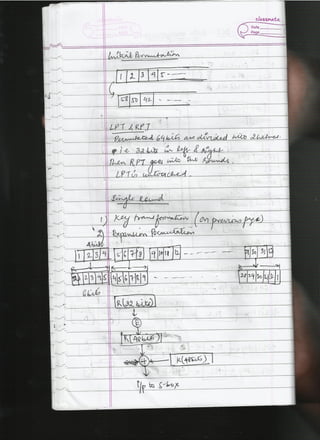 classmate
Date
Page
Initial Permutation
1 2 3 4 5 ------
58 50 42 - - - -
LPT & RPT
Permutated 64 bits are divided into 2 halves
i.e 32 bits in left & right.
Then RPT goes into the rounds.
LPT is untouched.
Single Round
1) Key transformation (on previous page)
2) Expansion Permutation
4 bits
1 2 3 4 5 6 7 8 9 10 11 12 - - - - - -
2 3 4 5 4 5 6 7 8 9 - - - - - -
6 bits
R(32 bits)
E
R(48 bits)
+ K(48 bits)
i/p to S-box